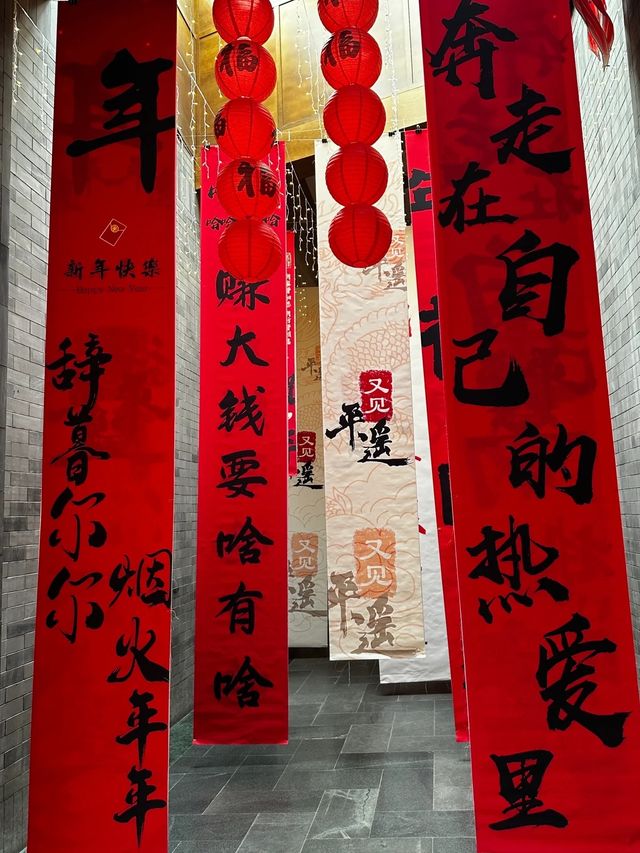 年
新年快樂
Happy New Year
辞暮尔尔
烟火年年
赚大钱要啥有啥
福
福
福
福
又见
平遥
又见
平遥
又见
平遥
又见
平遥
奔走在自己的热爱里